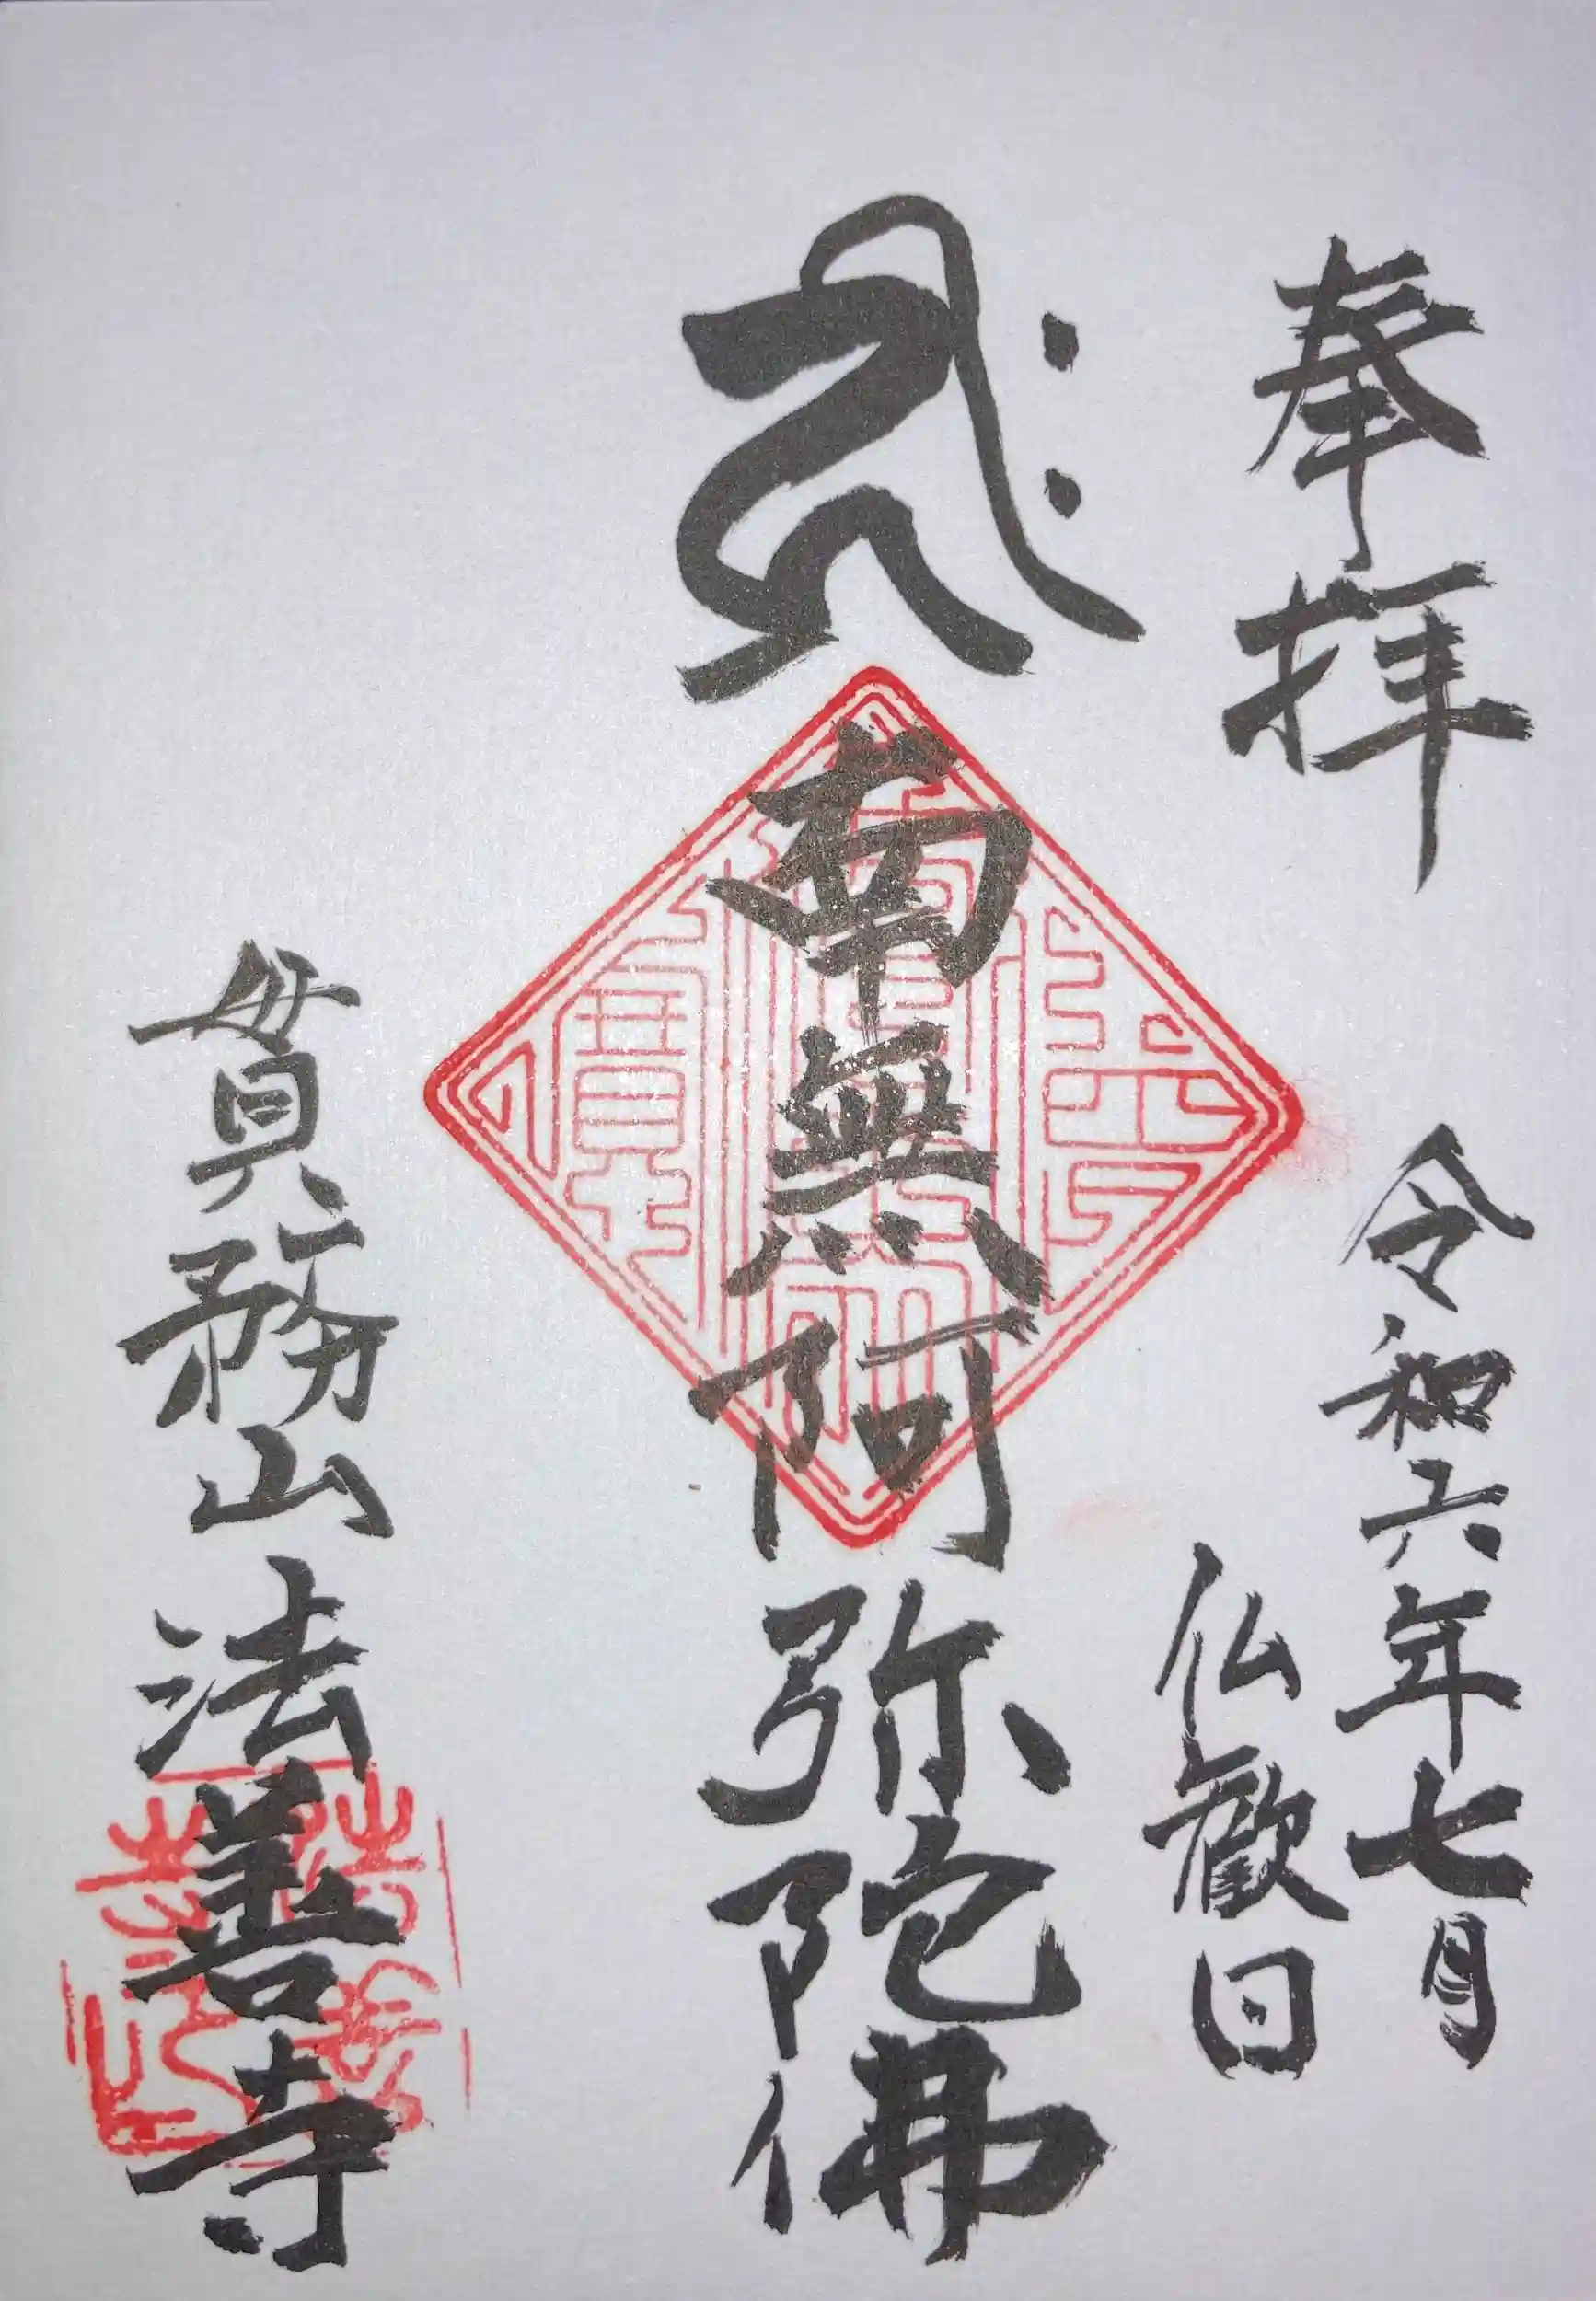 奉拝
令和六年七月
仏歓日
南無阿弥陀佛
貫務山法善寺